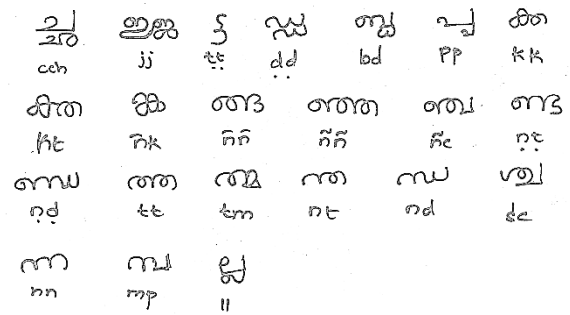 ച്ഛ ജ്ജ ട്ട ഡ്ഡ ബ്ദ പ്പ ക്ക
cch jj ṭṭ ḍḍ bd pp kk
ക്ത ങ്ക ങ്ങ ഞ്ഞ ഞ്ച ണ്ട
kt ṅk ṅṅ ññ ñc ṇṭ
ണ്ഡ ത്ത ത്മ ന്ത ന്ദ ശ്ച
ṇḍ tt tm nt nd śc
ന്ന മ്പ ല്ല
nn mp ll